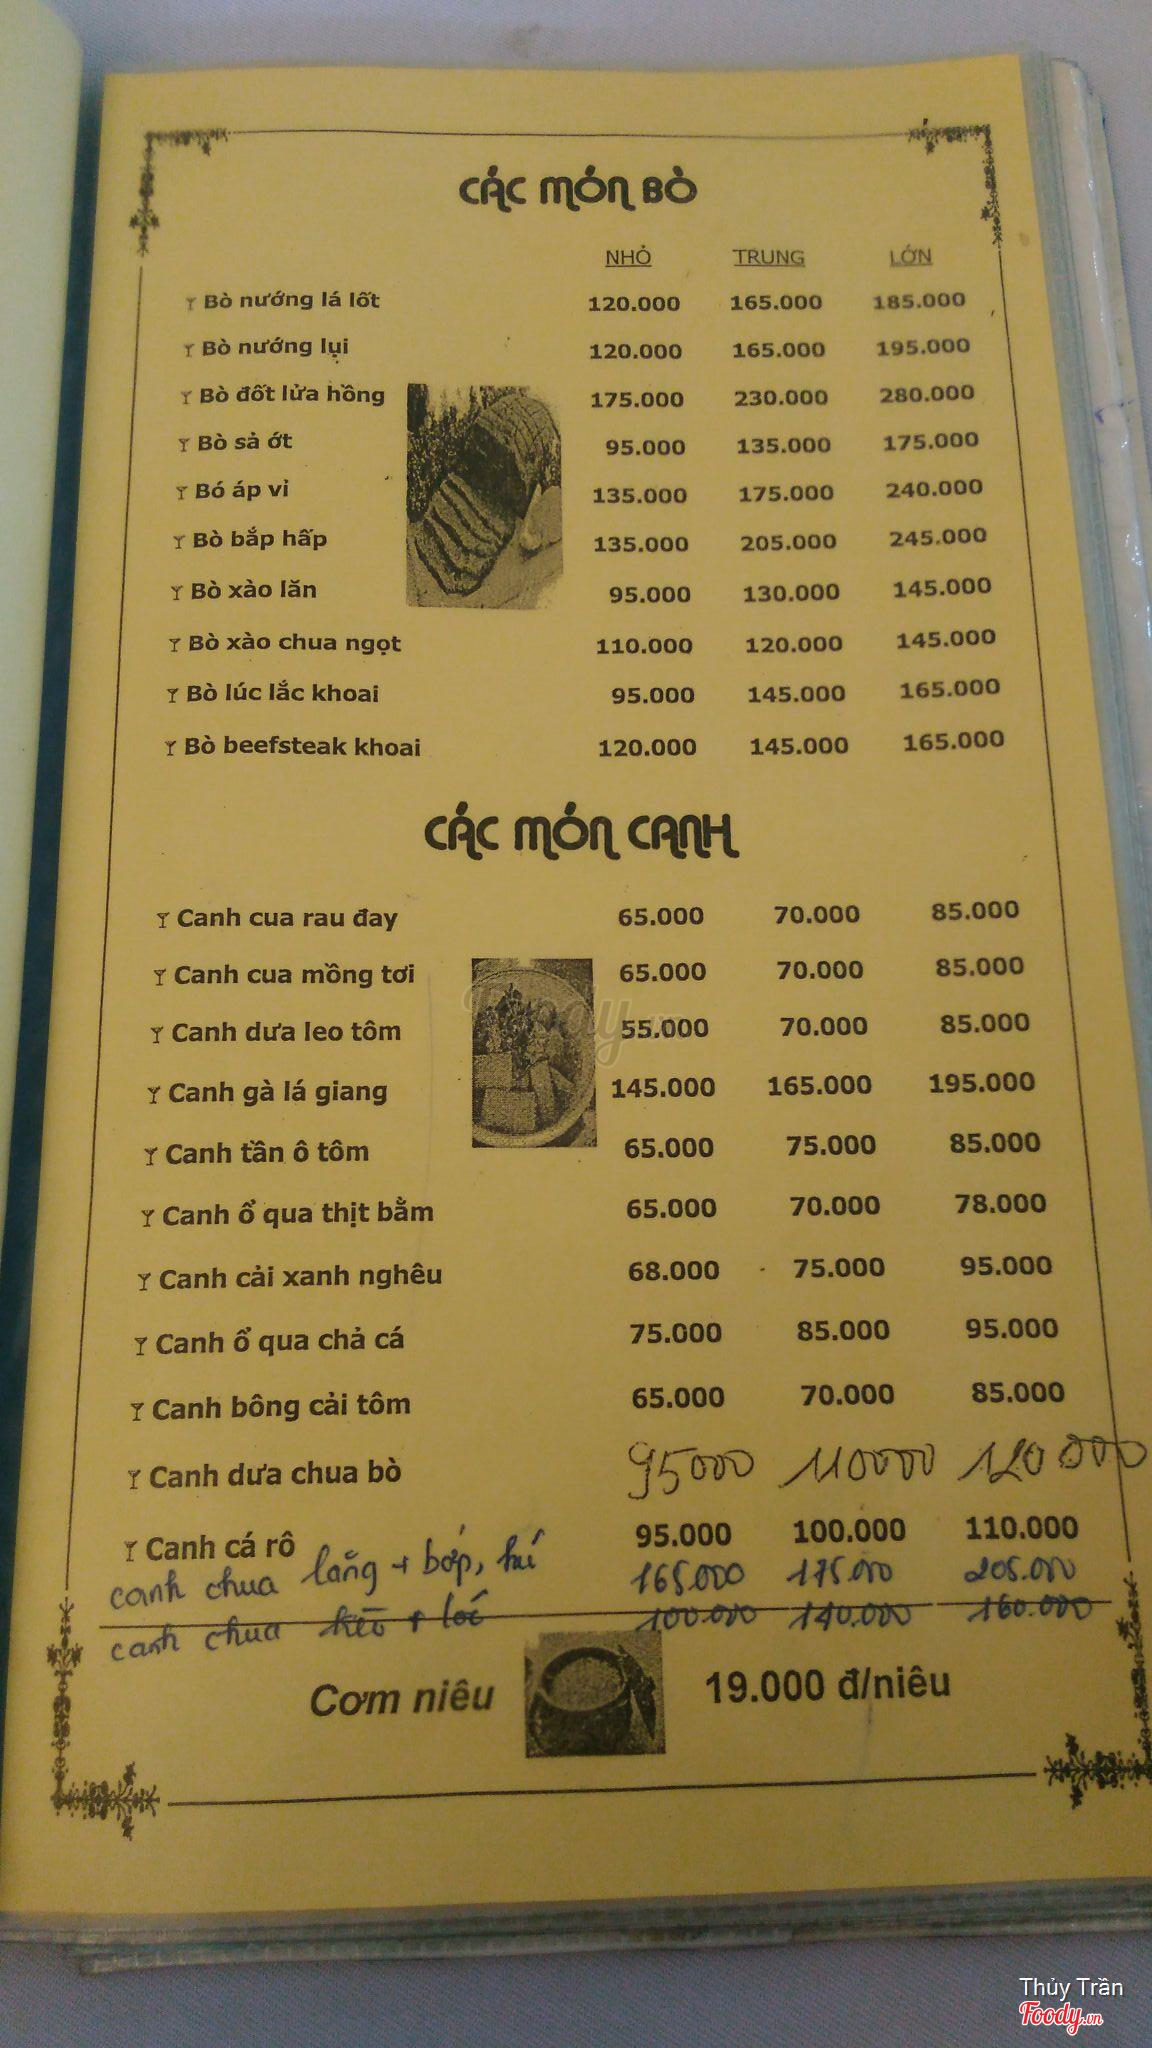 CÁC MÓN BÒ
NHỎ TRUNG LỚN
Bò nướng lá lốt 120.000 165.000 185.000
Bò nướng lụi 120.000 165.000 195.000
Bò đốt lửa hồng 175.000 230.000 280.000
Bò sả ớt 95.000 135.000 175.000
Bó áp vỉ 135.000 175.000 240.000
Bò bắp hấp 135.000 205.000 245.000
Bò xào lăn 95.000 130.000 145.000
Bò xào chua ngọt 110.000 120.000 145.000
Bò lúc lắc khoai 95.000 145.000 165.000
Bò beefsteak khoai 120.000 145.000 165.000
CÁC MÓN CANH
Canh cua rau đay 65.000 70.000 85.000
Canh cua mồng tơi 65.000 70.000 85.000
Canh dưa leo tôm 55.000 70.000 85.000
Canh gà lá giang 145.000 165.000 195.000
Canh tần ô tôm 65.000 75.000 85.000
Canh ổ qua thịt bằm 65.000 70.000 78.000
Canh cải xanh nghêu 68.000 75.000 95.000
Canh ổ qua chả cá 75.000 85.000 95.000
Canh bông cải tôm 65.000 70.000 85.000
Canh dưa chua bò 95000 110000 120 000
Canh cá rô 95.000 100.000 110.000
canh chua lăng + bớp, hú 165.000 175.000 205.000
canh chua kèo + lóc 100.000 140.000 160.000
Cơm niêu 19.000 đ/niêu
Foody.vn
Thủy Trần
Foody.vn